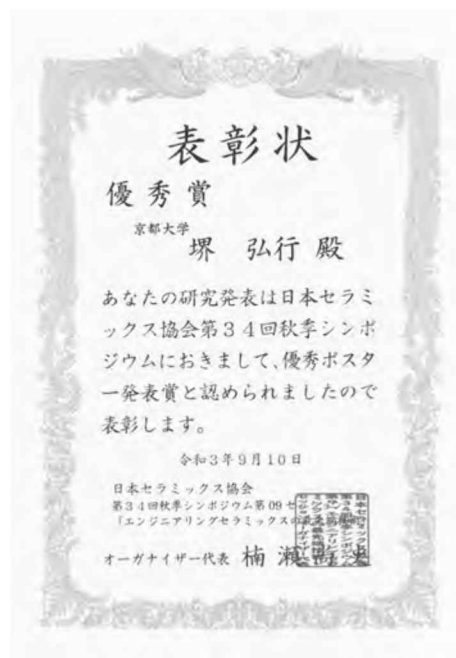 表彰状
優秀賞
京都大学
堺 弘行 殿
あなたの研究発表は日本セラミ
ックス協会第34回秋季シンポ
ジウムにおきまして、優秀ポスタ
ー発表賞と認められましたので
表彰します。
令和3年9月10日
日本セラミックス協会
第34回秋季シンポジウム第09セ
「エンジニアリングセラミックスの
オーガナイザー代表 楠瀬尚史